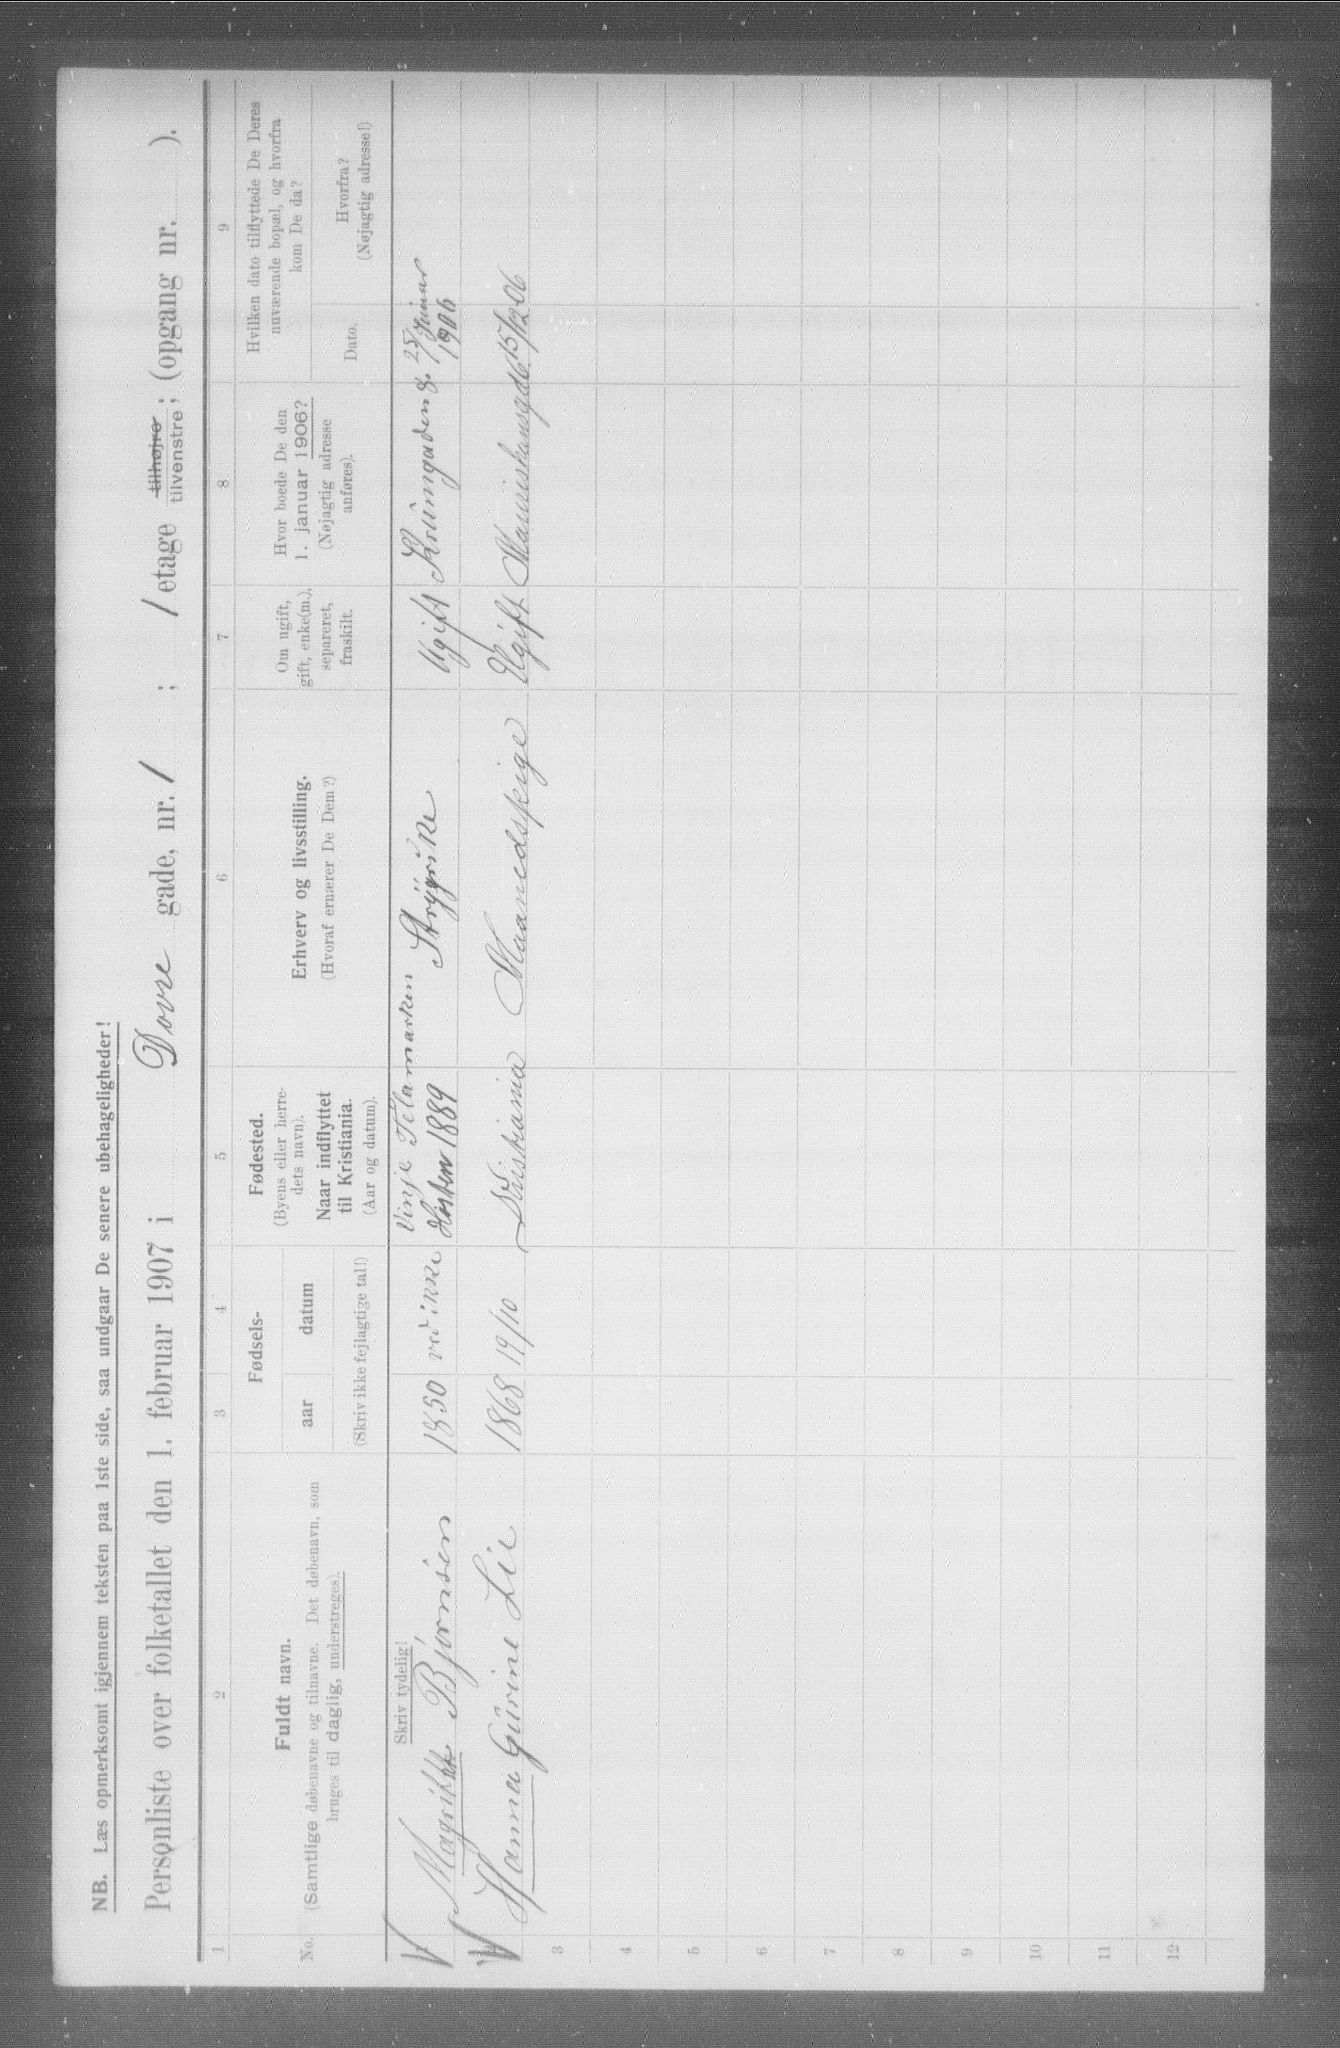 NB. Læs opmerksomt igjennem teksten paa 1ste side, saa undgaar De senere ubehageligheder!
Personliste over folketallet den 1. februar 1907 i Dovre gade, nr. 1 ; 1 etage tilhøjre tilvenstre; (opgang nr. ).
1 2 3 4 5 6 7 8 9
No.
Fuldt navn.
(Samtlige døbenavne og tilnavne. Det døbenavn, som
bruges til daglig, understreges).
Fødsels-
aar datum
(Skriv ikke fejlagtige tal!)
Fødested.
(Byens eller herre-
dets navn).
Naar indflyttet
til Kristiania.
(Aar og datum).
Erhverv og livsstilling.
(Hvoraf ernærer De Dem?)
Om ugift,
gift, enke(m.),
separeret,
fraskilt.
Hvor boede De den
1. januar 1906?
(Nøjagtig adresse
anføres).
Hvilken dato tilflyttede De Deres
nuværende bopæl, og hvorfra
kom De da?
Dato.
Hvorfra?
(Nøjagtig adresse!)
Skriv tydelig!
1 Bjørnsen 1850 ved ikke Vinje Telamarken Høsten 1889 Ugift 8. 25/ Januar 1906
2 Hanna Gurine Lie 1868 19/10 Kristiania Maanedspige Ugift 15/12 06
3
4
5
6
7
8
9
10
11
12